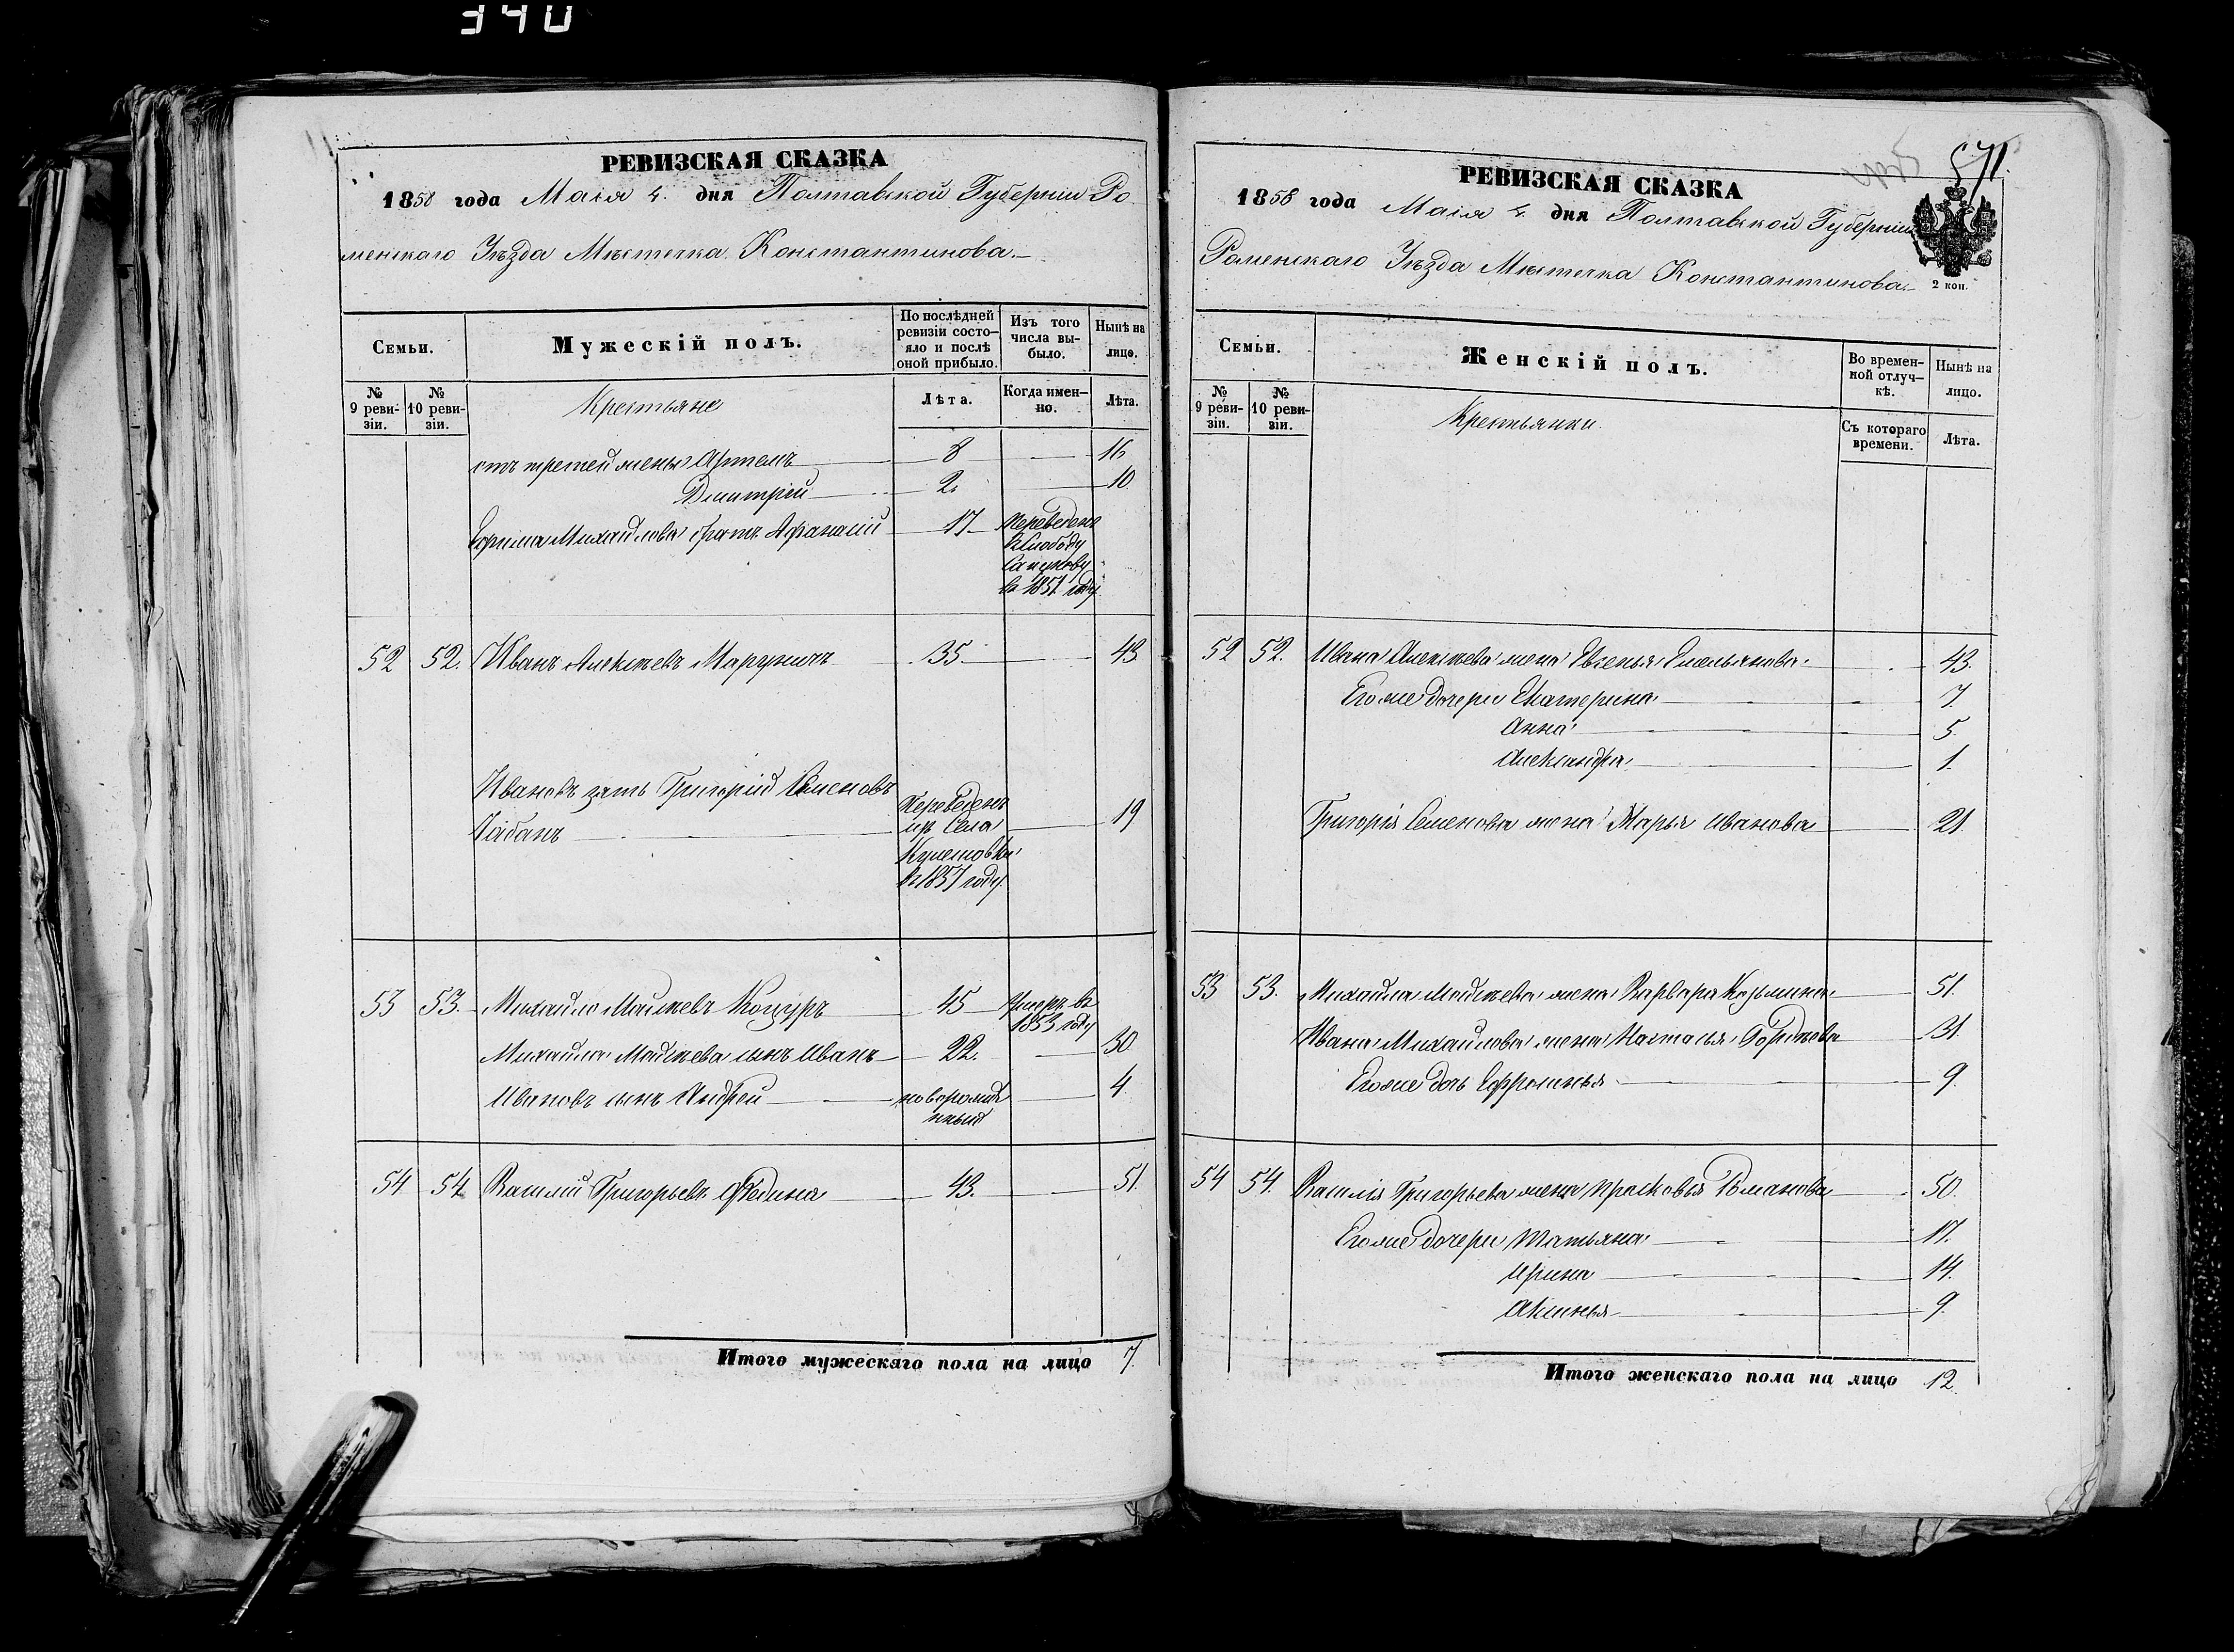 340
РЕВИЗСКАЯ СКАЗКА
1858 года Маія 4. дня Полтавской Губерніи Ро
менскаго Уѣзда Мѣстечка Константинова.
Семьи.
Мужескій полъ.
По послѣдней ревизіи состо-
яло и послѣ оной прибыло.
Изъ того числа вы-
было.
Нынѣ на лицо.
№ 9 реви-
зіи.
№ 10 реви-
зіи.
Крестьяне
Лѣта.
Когда имен-
но.
Лѣта.
отъ третей жены Артемъ 8 16
Дмитрій 2. 10
Ефима Михайлова братъ Афанасій 17 Переведенъ
въ Слободу
въ 1851 году
52 52. Иванъ Алексѣевъ 35 43
Ивановъ зять Григорій Семеновъ Переведенъ
Чабанъ изъ Села 19
въ 1857 году
53 53. Михайло Моисѣевъ Коцуръ 45 Умеръ въ
1853 году
Михайла Моисѣева сынъ Иванъ 22. 30
Ивановъ сынъ Андрей новорожде
нный 4
54 54 Василій Григорьевъ Федина 43. 51.
Итого мужескаго пола на лицо 7.
571.
РЕВИЗСКАЯ СКАЗКА
1858 года Маія 4. дня Полтавской Губерніи
Роменскаго Уѣзда Мѣстечка Константинова.
2 коп.
Семьи.
Женскій полъ.
Во времен-
ной отлуч-
кѣ.
Нынѣ на лицо.
№ 9 реви-
зіи.
№ 10 реви-
зіи.
Крестьянки.
Съ котораго времени.
Лѣта.
52 52. Ивана Алексѣева жена Евгенья Емельянова 43.
Его же дочери Екатерина 7.
Анна 5.
Александра 1.
Григорія Семенова жена Марья Иванова 21.
53 53. Михайла Моисѣева жена Варвара Козьмина 51.
Ивана Михайлова жена Наталья Гордѣева 31
Его же дочь Ефросинья 9.
54 54. Василія Григорьева жена Прасковья Романова 50.
Его же дочери Татьяна 17.
Ирина 14.
Аксинья 9.
Итого женскаго пола на лицо 12.